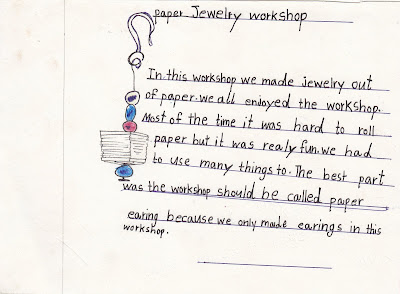 paper Jewelry workshop
In this workshop we made jewelry out
of paper. we all enjoyed the workshop.
Most of the time it was hard to roll
paper but it was realy fun. we had
to use many things to. The best part
was the workshop should be called paper
earing because we only made earings in this
workshop.